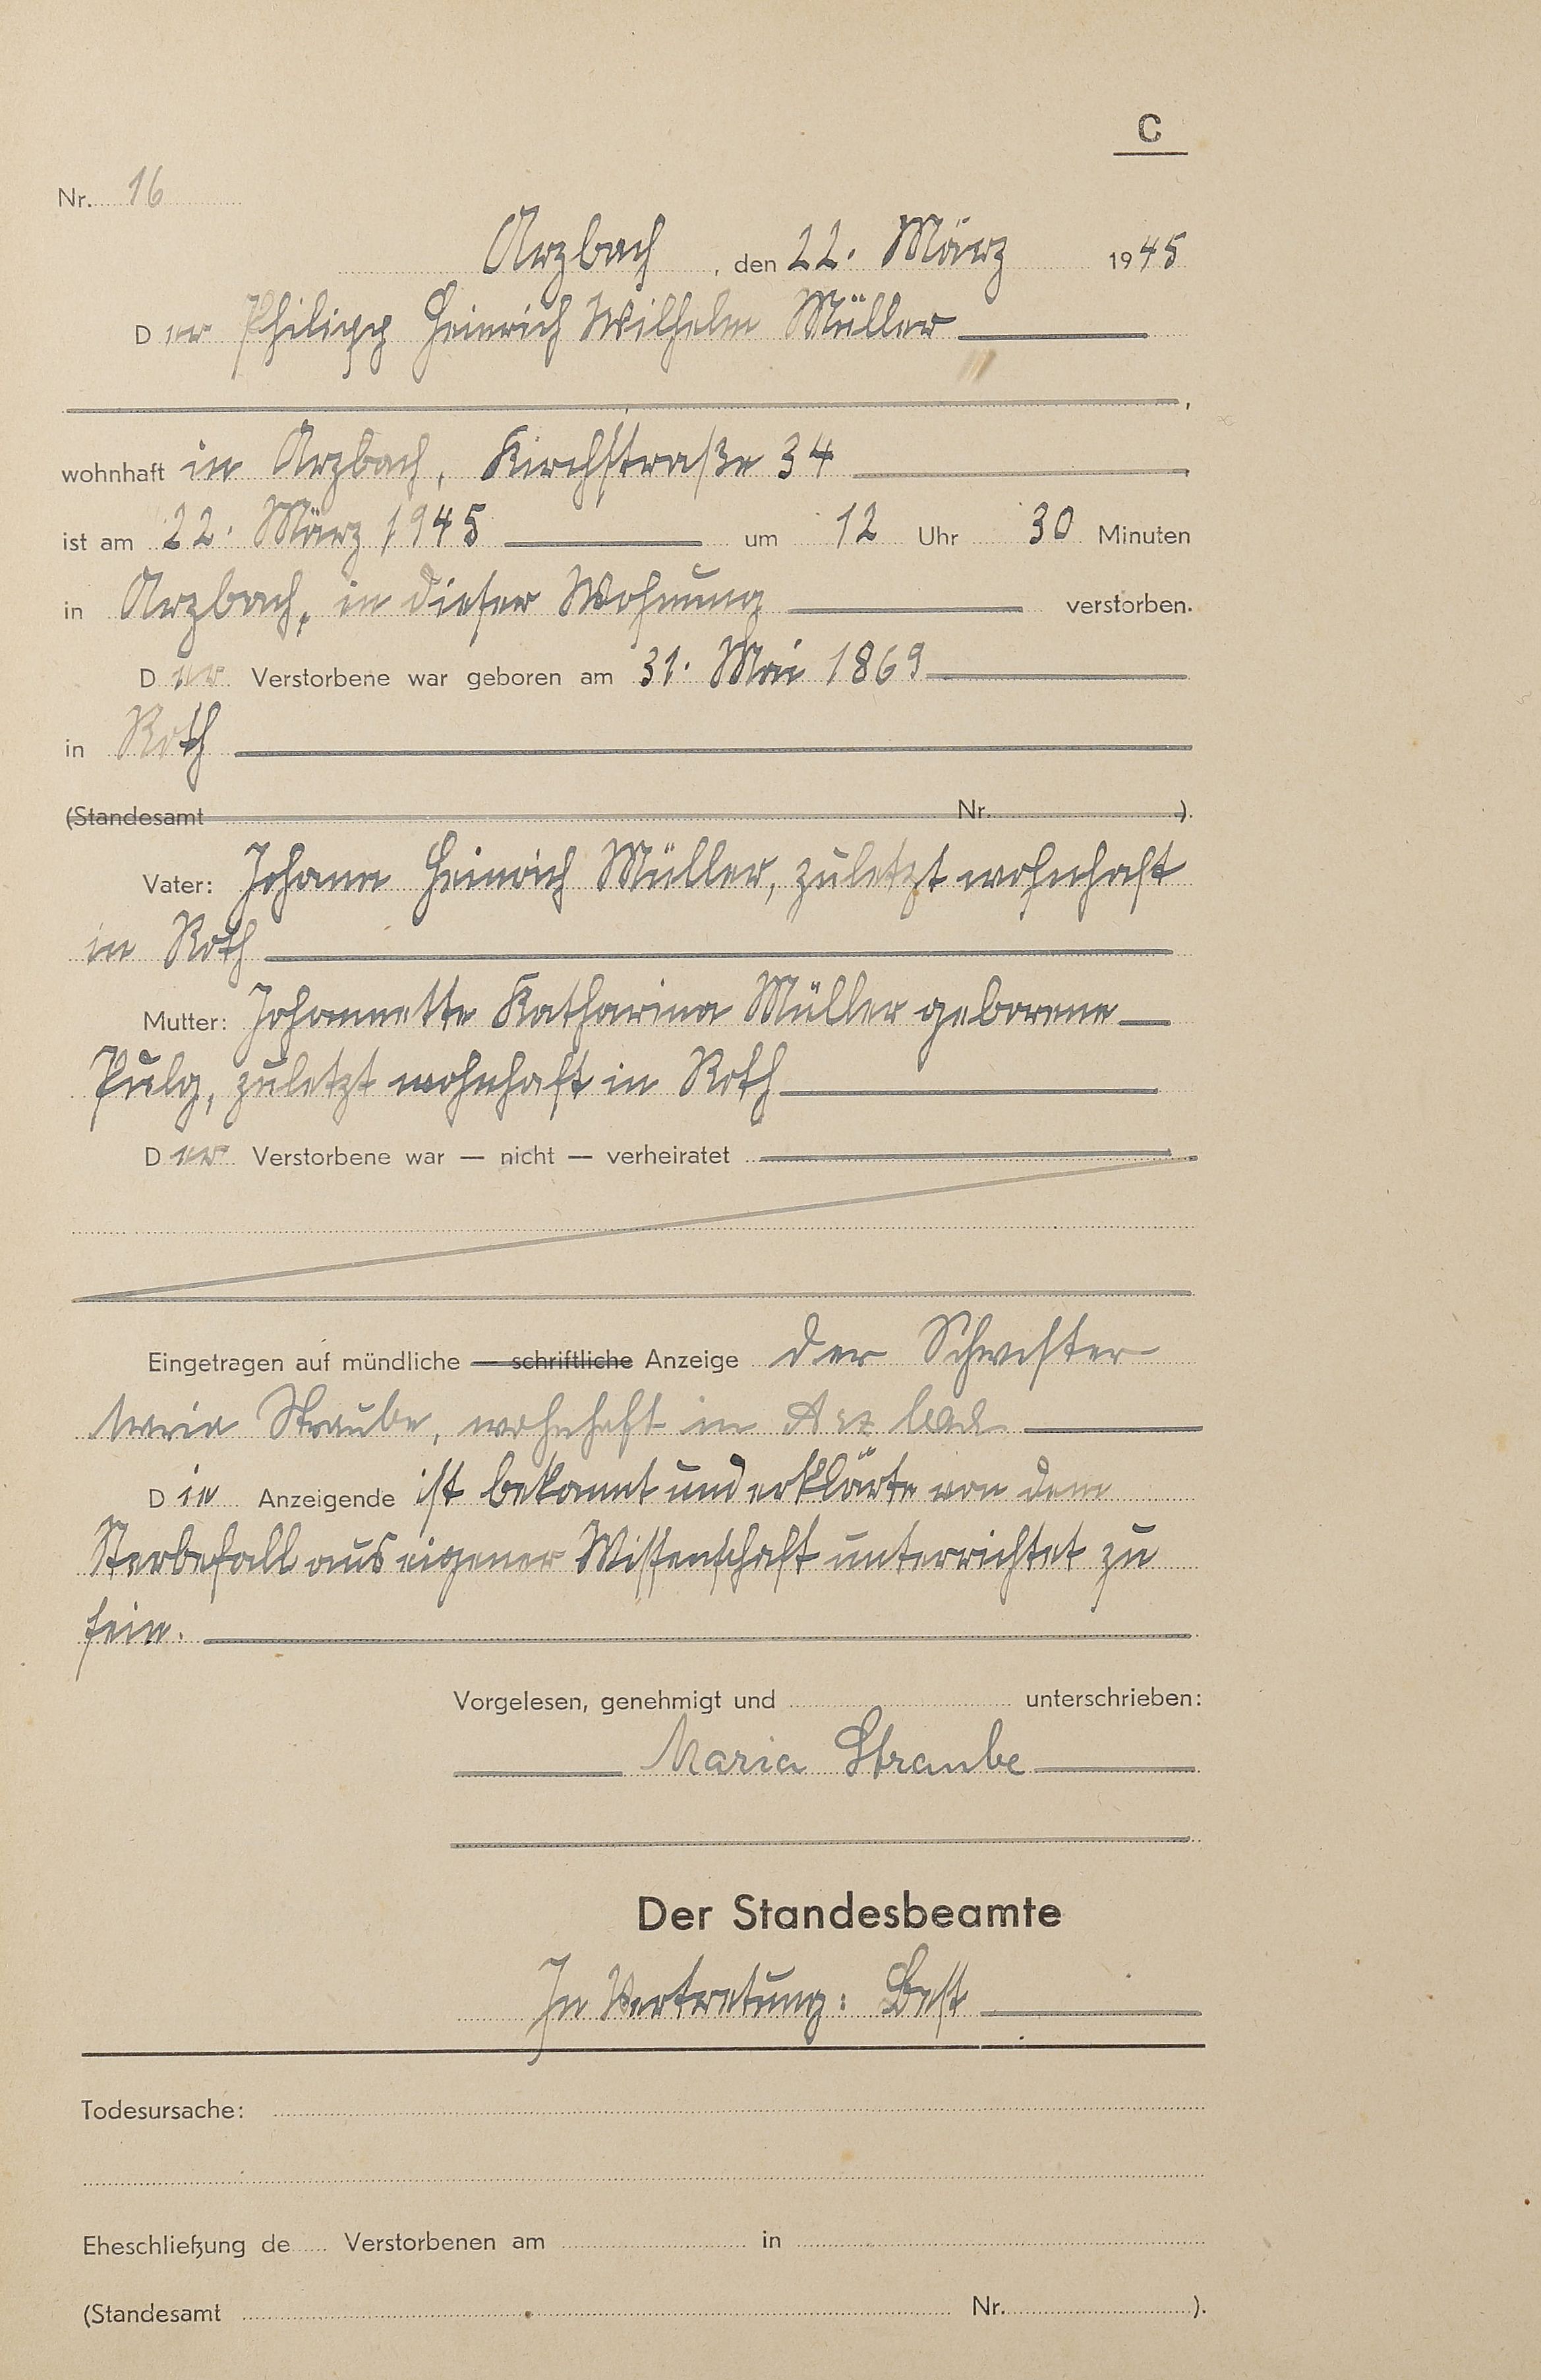 C
Nr. 16
Arzbach, den 22. März 1945
Der Philipp Heinrich Wilhelm Müller
,
wohnhaft in Arzbach, Kirchstraße 34
ist am 22. März 1945 um 12 Uhr 30 Minuten
in Arzbach, in dieser Wohnung verstorben.
Der Verstorbene war geboren am 31. Mai 1869
in Roth
(Standesamt Nr. ).
Vater: Johann Heinrich Müller, zuletzt wohnhaft
in Roth
Mutter: Johannette Katharina Müller geborene
zuletzt wohnhaft in Roth
Der Verstorbene war — nicht — verheiratet
Eingetragen auf mündliche — schriftliche Anzeige der Schwester
Maria Straube, wohnhaft in Arzbach
Die Anzeigende ist bekannt und erklärte von dem
Sterbefall aus eigener Wissenschaft unterrichtet zu
sein.
Vorgelesen, genehmigt und unterschrieben:
Maria Straube
Der Standesbeamte
In Vertretung: Best
Todesursache:
Eheschließung de Verstorbenen am in
(Standesamt Nr. ).